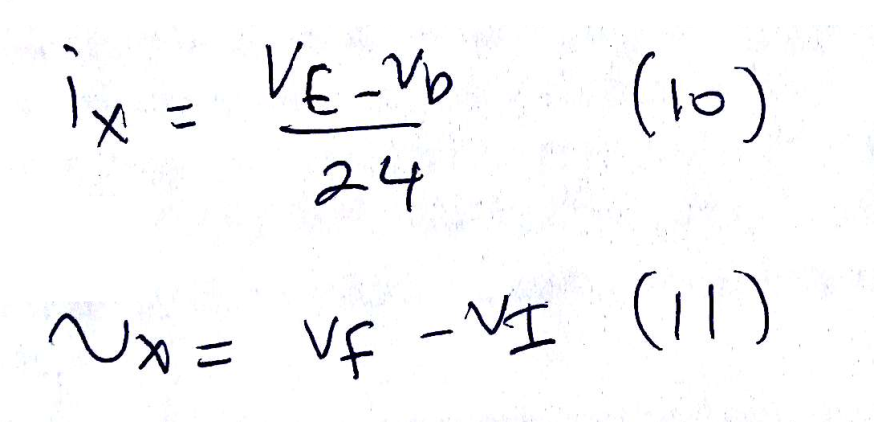 i_x = (V_E - V_b) / 24 (10)
v_x = v_f - v_I (11)